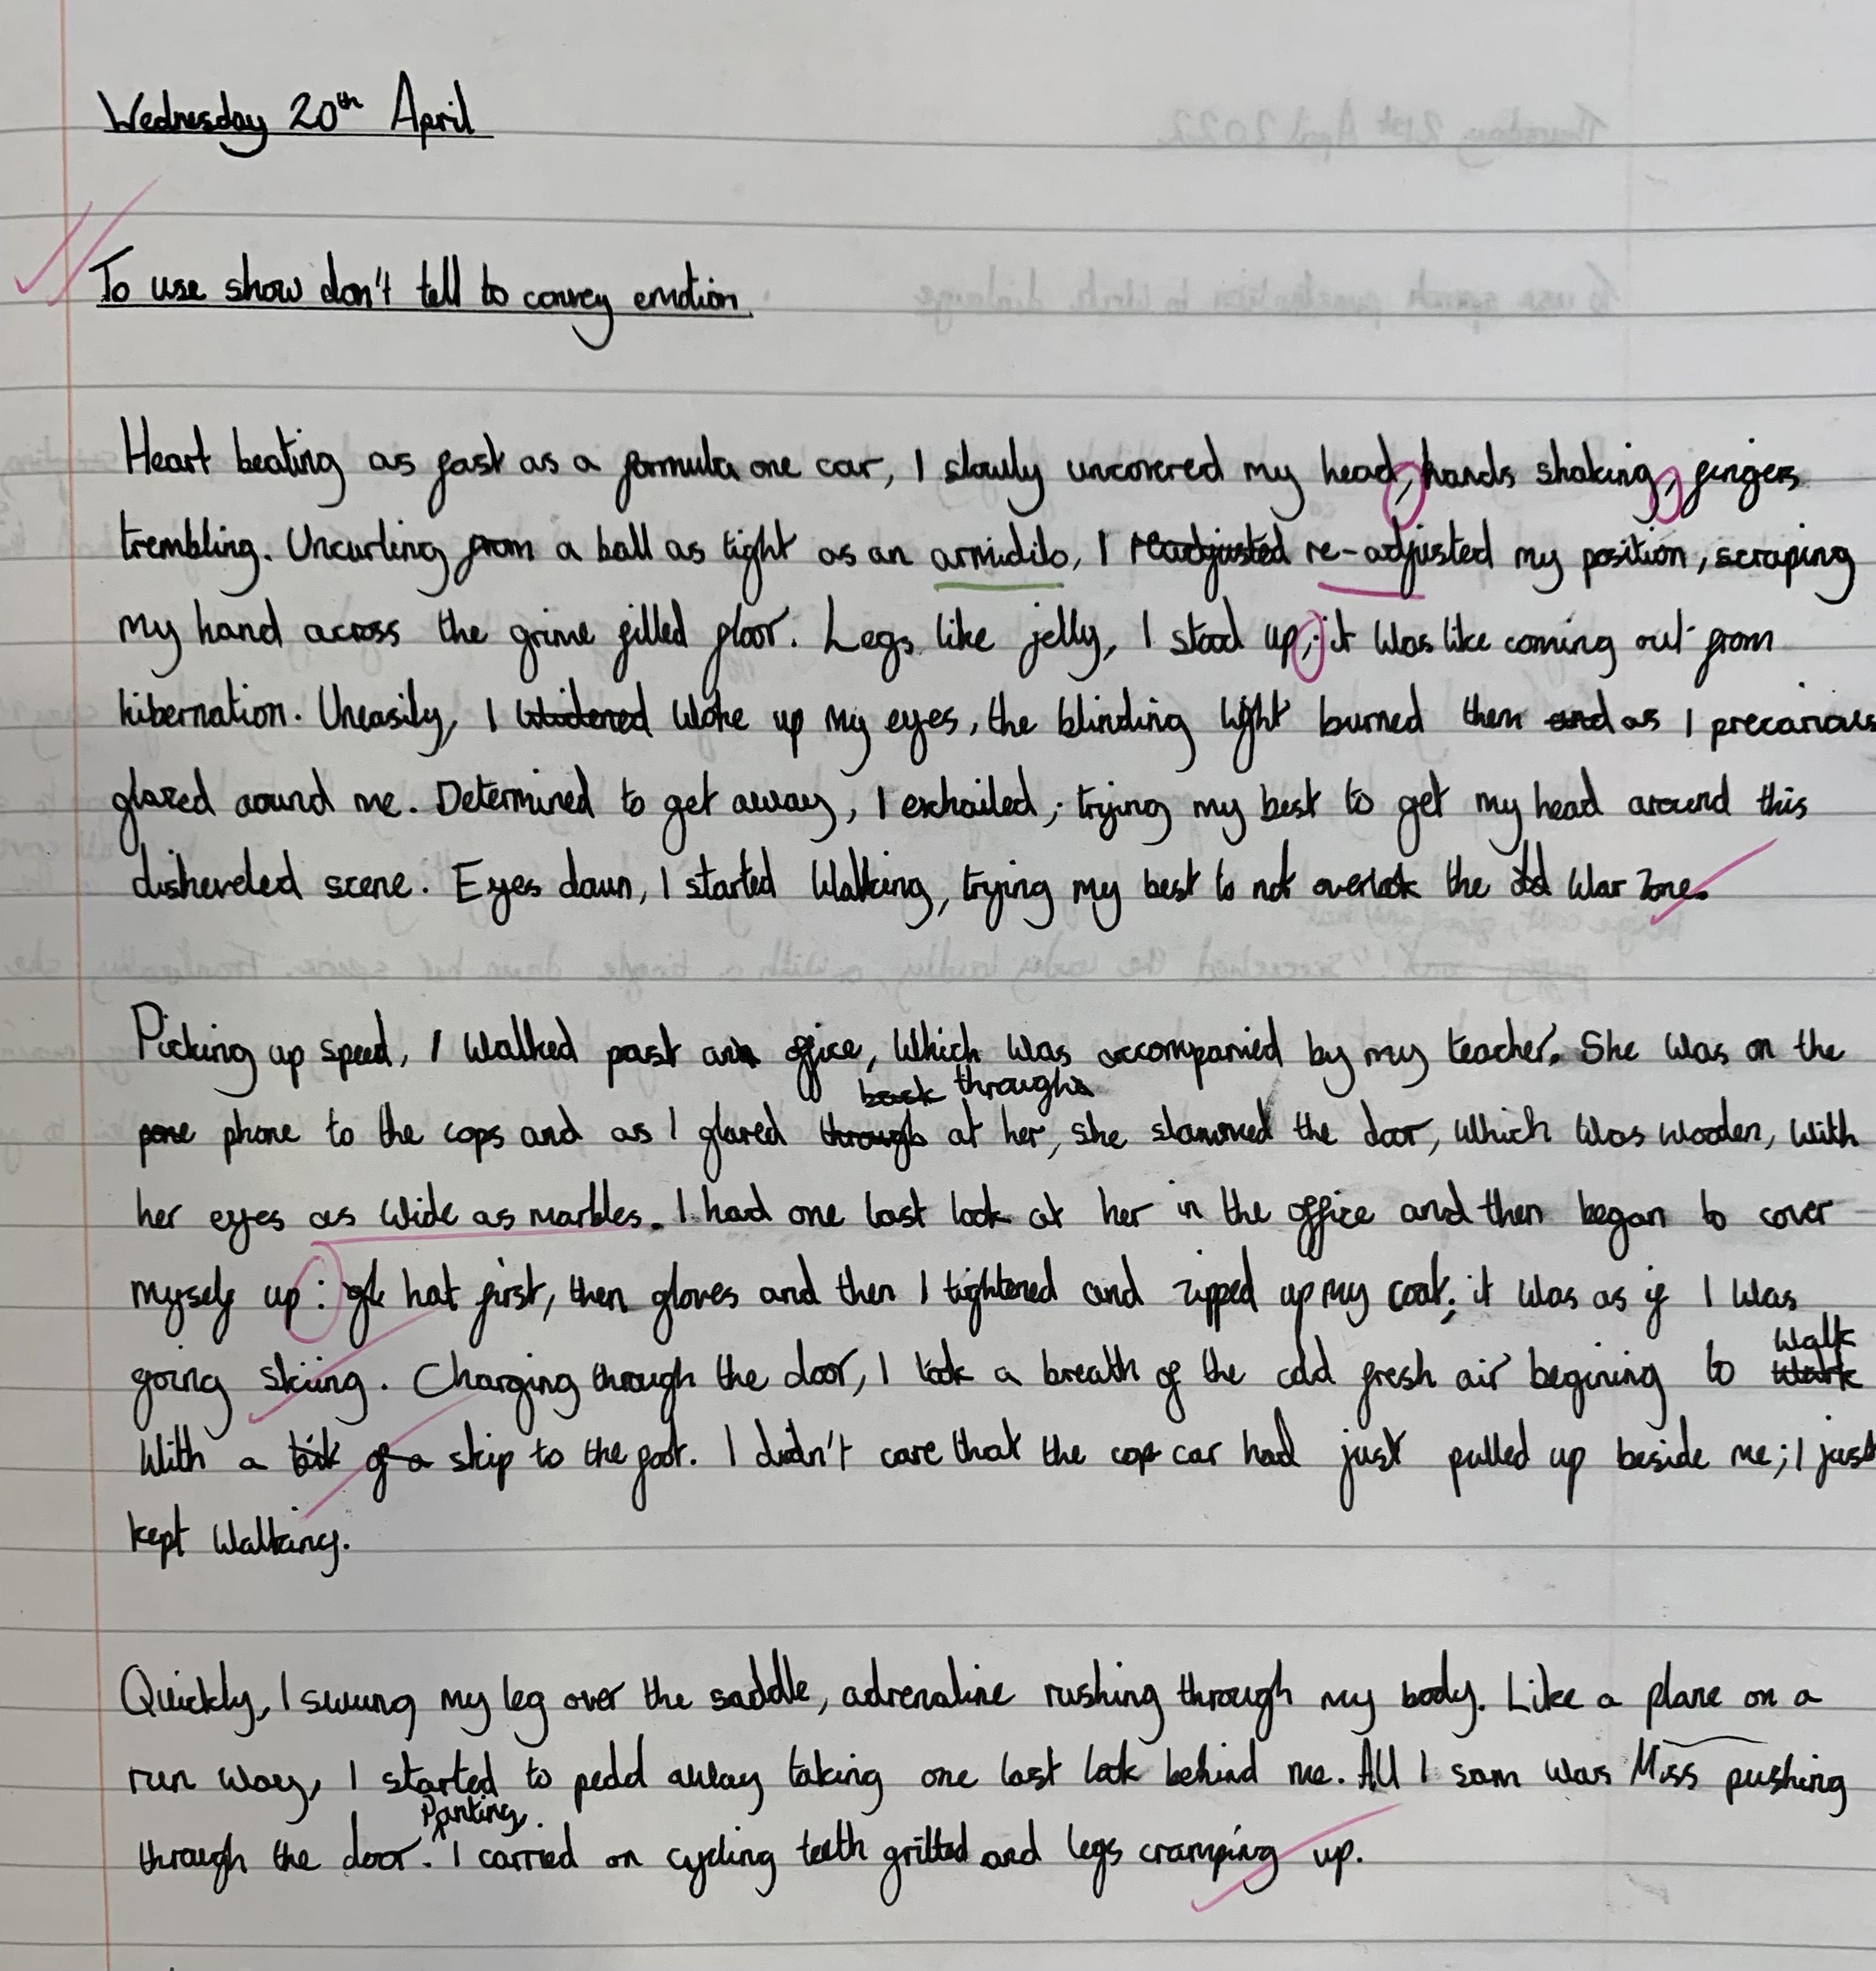 Wednesday 20th April
To use show don't tell to convey emotion.
Heart beating as fast as a formula one car, I slowly uncovered my head, hands shaking, fingers
trembling. Uncurling from a ball as tight as an armidilo, I readjusted re-adjusted my position, scraping
my hand across the grime filled floor. Legs like jelly, I stood up; it was like coming out from
hibernation. Uneasily, I widened woke up my eyes, the blinding light burned them and as I precarious
glared around me. Determined to get away, I exhailed; trying my best to get my head around this
disheveled scene. Eyes down, I started walking, trying my best to not overlook the old war zone.
Picking up speed, I walked past an office, which was accompanied by my teacher. She was on the
back through
pone phone to the cops and as I glared through at her, she slammed the door, which was wooden, with
her eyes as wide as marbles. I had one last look at her in the office and then began to cover
myself up: gl hat first, then gloves and then I tightened and zipped up my coat; it was as if I was
walk
going skiing. Charging through the door, I took a breath of the cold fresh air begining to walk
with a bit of a skip to the foot. I didn't care that the cop car had just pulled up beside me; I just
kept walking.
Quickly, I swung my leg over the saddle, adrenaline rushing through my body. Like a plane on a
run way, I started to pedd away taking one last look behind me. All I sam was Miss pushing
Panting,
through the door. I carried on cycling teeth gritted and legs cramping up.